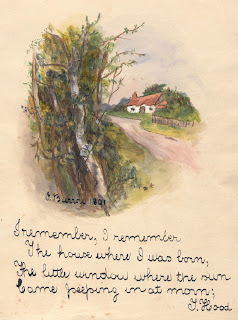 J. Burrow 1891
I remember, I remember
The house where I was born;
The little window where the sun
Came peeping in at morn;
T. Hood